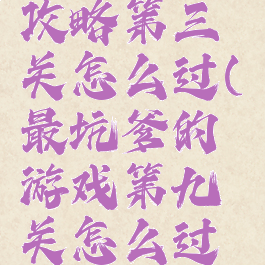 攻略第三
关怎么过(
最坑爹的
游戏第九
关怎么过